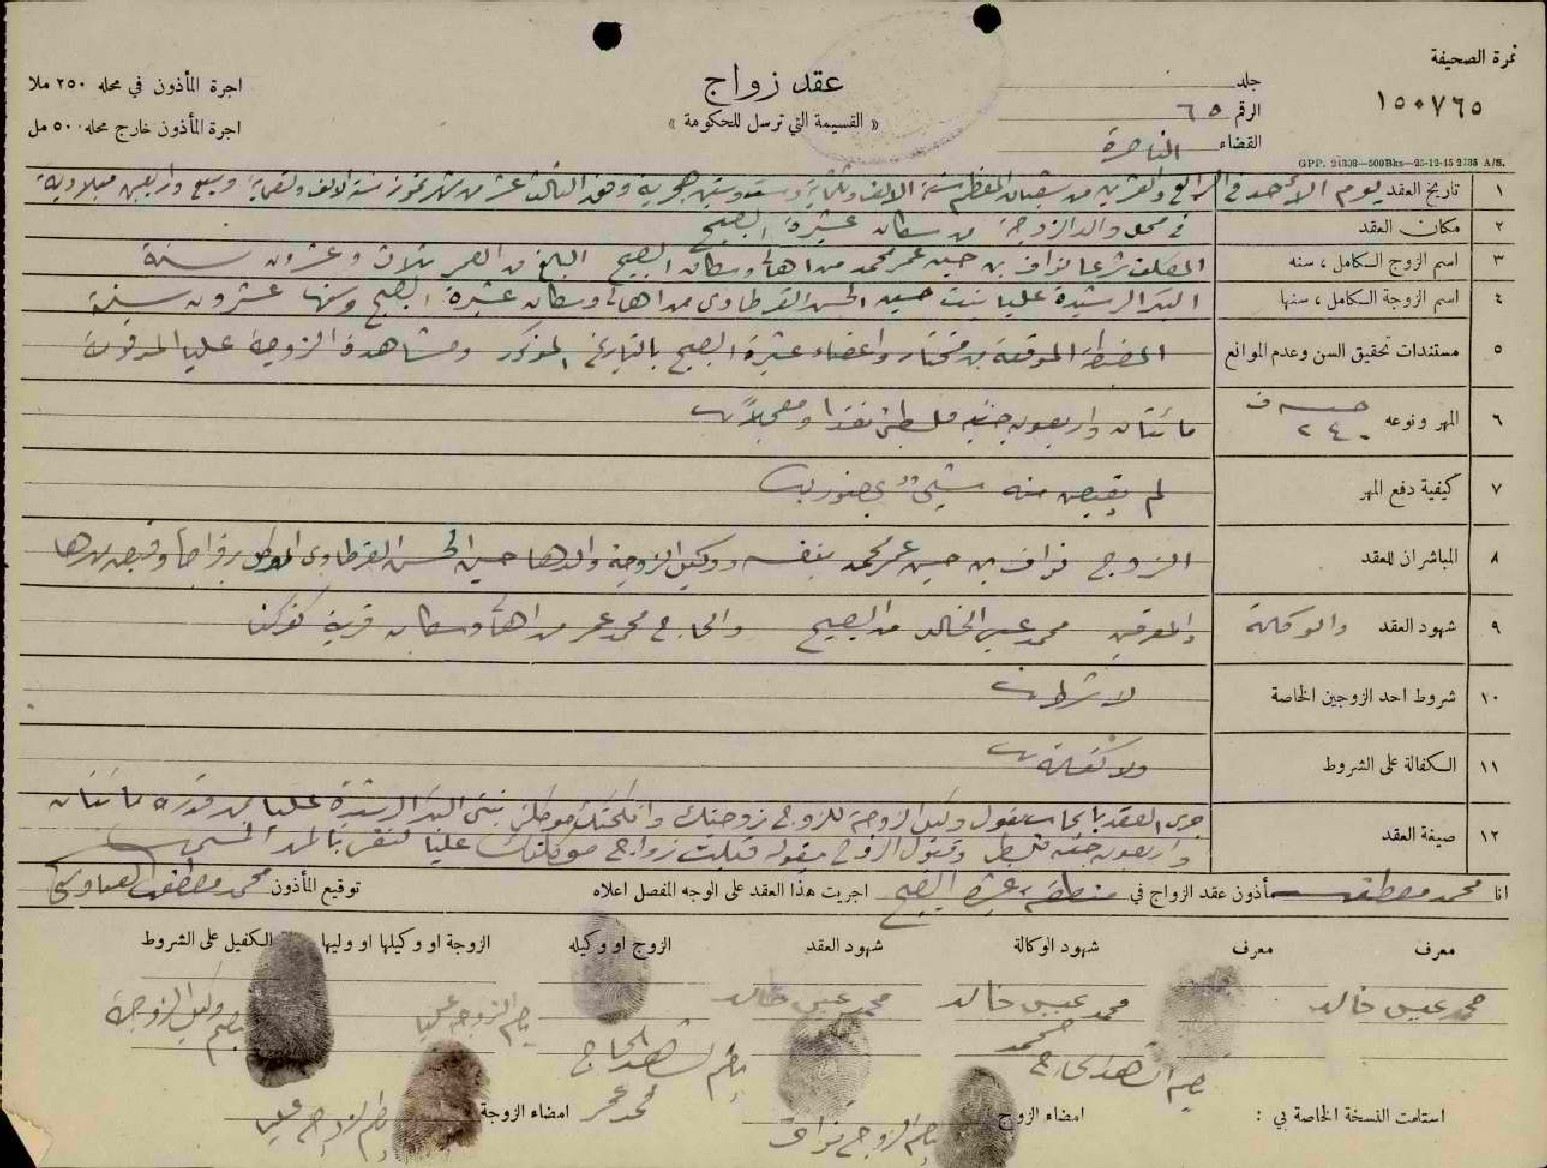 نمرة الصحيفة
١٥٠٧٦٥
جلد
الرقم ٦٥
القضاء الناصرة
عقد زواج
« القسيمة التي ترسل للحكومة »
اجرة المأذون في محله ٢٥٠ ملا
اجرة المأذون خارج محله ٥٠٠ مل
GPP. 24808—500Bks—25-12-45 2335 A/S.
١ تاريخ العقد يوم الأحد في الرابع والعشرين من شعبان المعظم سنة الالف وثلثماية وستة وستين هجرية وفق الثالث عشر من شهر تموز سنة الالف وتسعماية وسبع واربعين ميلادية
٢ مكان العقد في محل والد الزوجة من سكان عشيرة الصبيح
٣ اسم الزوج الكامل ، سنه المكلف شرعا نواف بن حسين عمر محمد من اهالي وسكان الصبيح البالغ من العمر ثلاث وعشرون سنة
٤ اسم الزوجة الكامل ، سنها البكر الرشيدة عليا بنت حسين الحسن القرطاوي من اهالي وسكان عشيرة الصبيح وسنها عشرون سنة
٥ مستندات تحقيق السن وعدم الموانع المضبطة الموقعة من مختار واعضاء عشيرة الصبيح بالتاريخ المذكور ومشاهدة الزوجة عليا المرقومة
٦ المهر ونوعه ٢٤٠ مائتان واربعون جنيه فلسطيني نقدا ومعجلا
٧ كيفية دفع المهر لم يقبض منه شيئ بحضوري
٨ المباشران للعقد الزوج نواف بن حسين عمر محمد بنفسه ووكيل الزوجة والدها حسين الحسن القرطاوي الموكل بزواجها وقبض مهرها
٩ شهود العقد والوكالة والمعرفين محمد عيسى الخالد من الصبيح والحاج محمد عمر من اهالي وسكان قرية كفركنا
١٠ شروط احد الزوجين الخاصة لا شرط
١١ الكفالة على الشروط ولا كفالة
١٢ صيغة العقد جرى العقد بايجاب بقول وكيل الزوجة للزوج زوجتك وانكحتك موكلتي بنتي البكر الرشيدة عليا بمهر قدره مائتان
واربعون جنيه فلسطيني وقبول الزوج بقوله قبلت زواج موكلتك عليا لنفسي بالمهر المسمى
انا محمد مصطفى مأذون عقد الزواج في منطقة عشيرة الصبيح اجريت هذا العقد على الوجه المفصل اعلاه توقيع المأذون محمد مصطفى
معرف معرف شهود الوكالة شهود العقد الزوج او وكيله الزوجة او وكيلها او وليها الكفيل على الشروط
محمد عيسى خالد محمد عيسى خالد محمد عيسى خالد بصم الزوجة عليا بصم وكيل الزوجة
بصم الشاهد الحاج محمد بصم الشاهد الحاج محمد عمر
استلمت النسخة الخاصة بي : امضاء الزوج بصم الزوج نواف امضاء الزوجة بصم الزوجة عليا